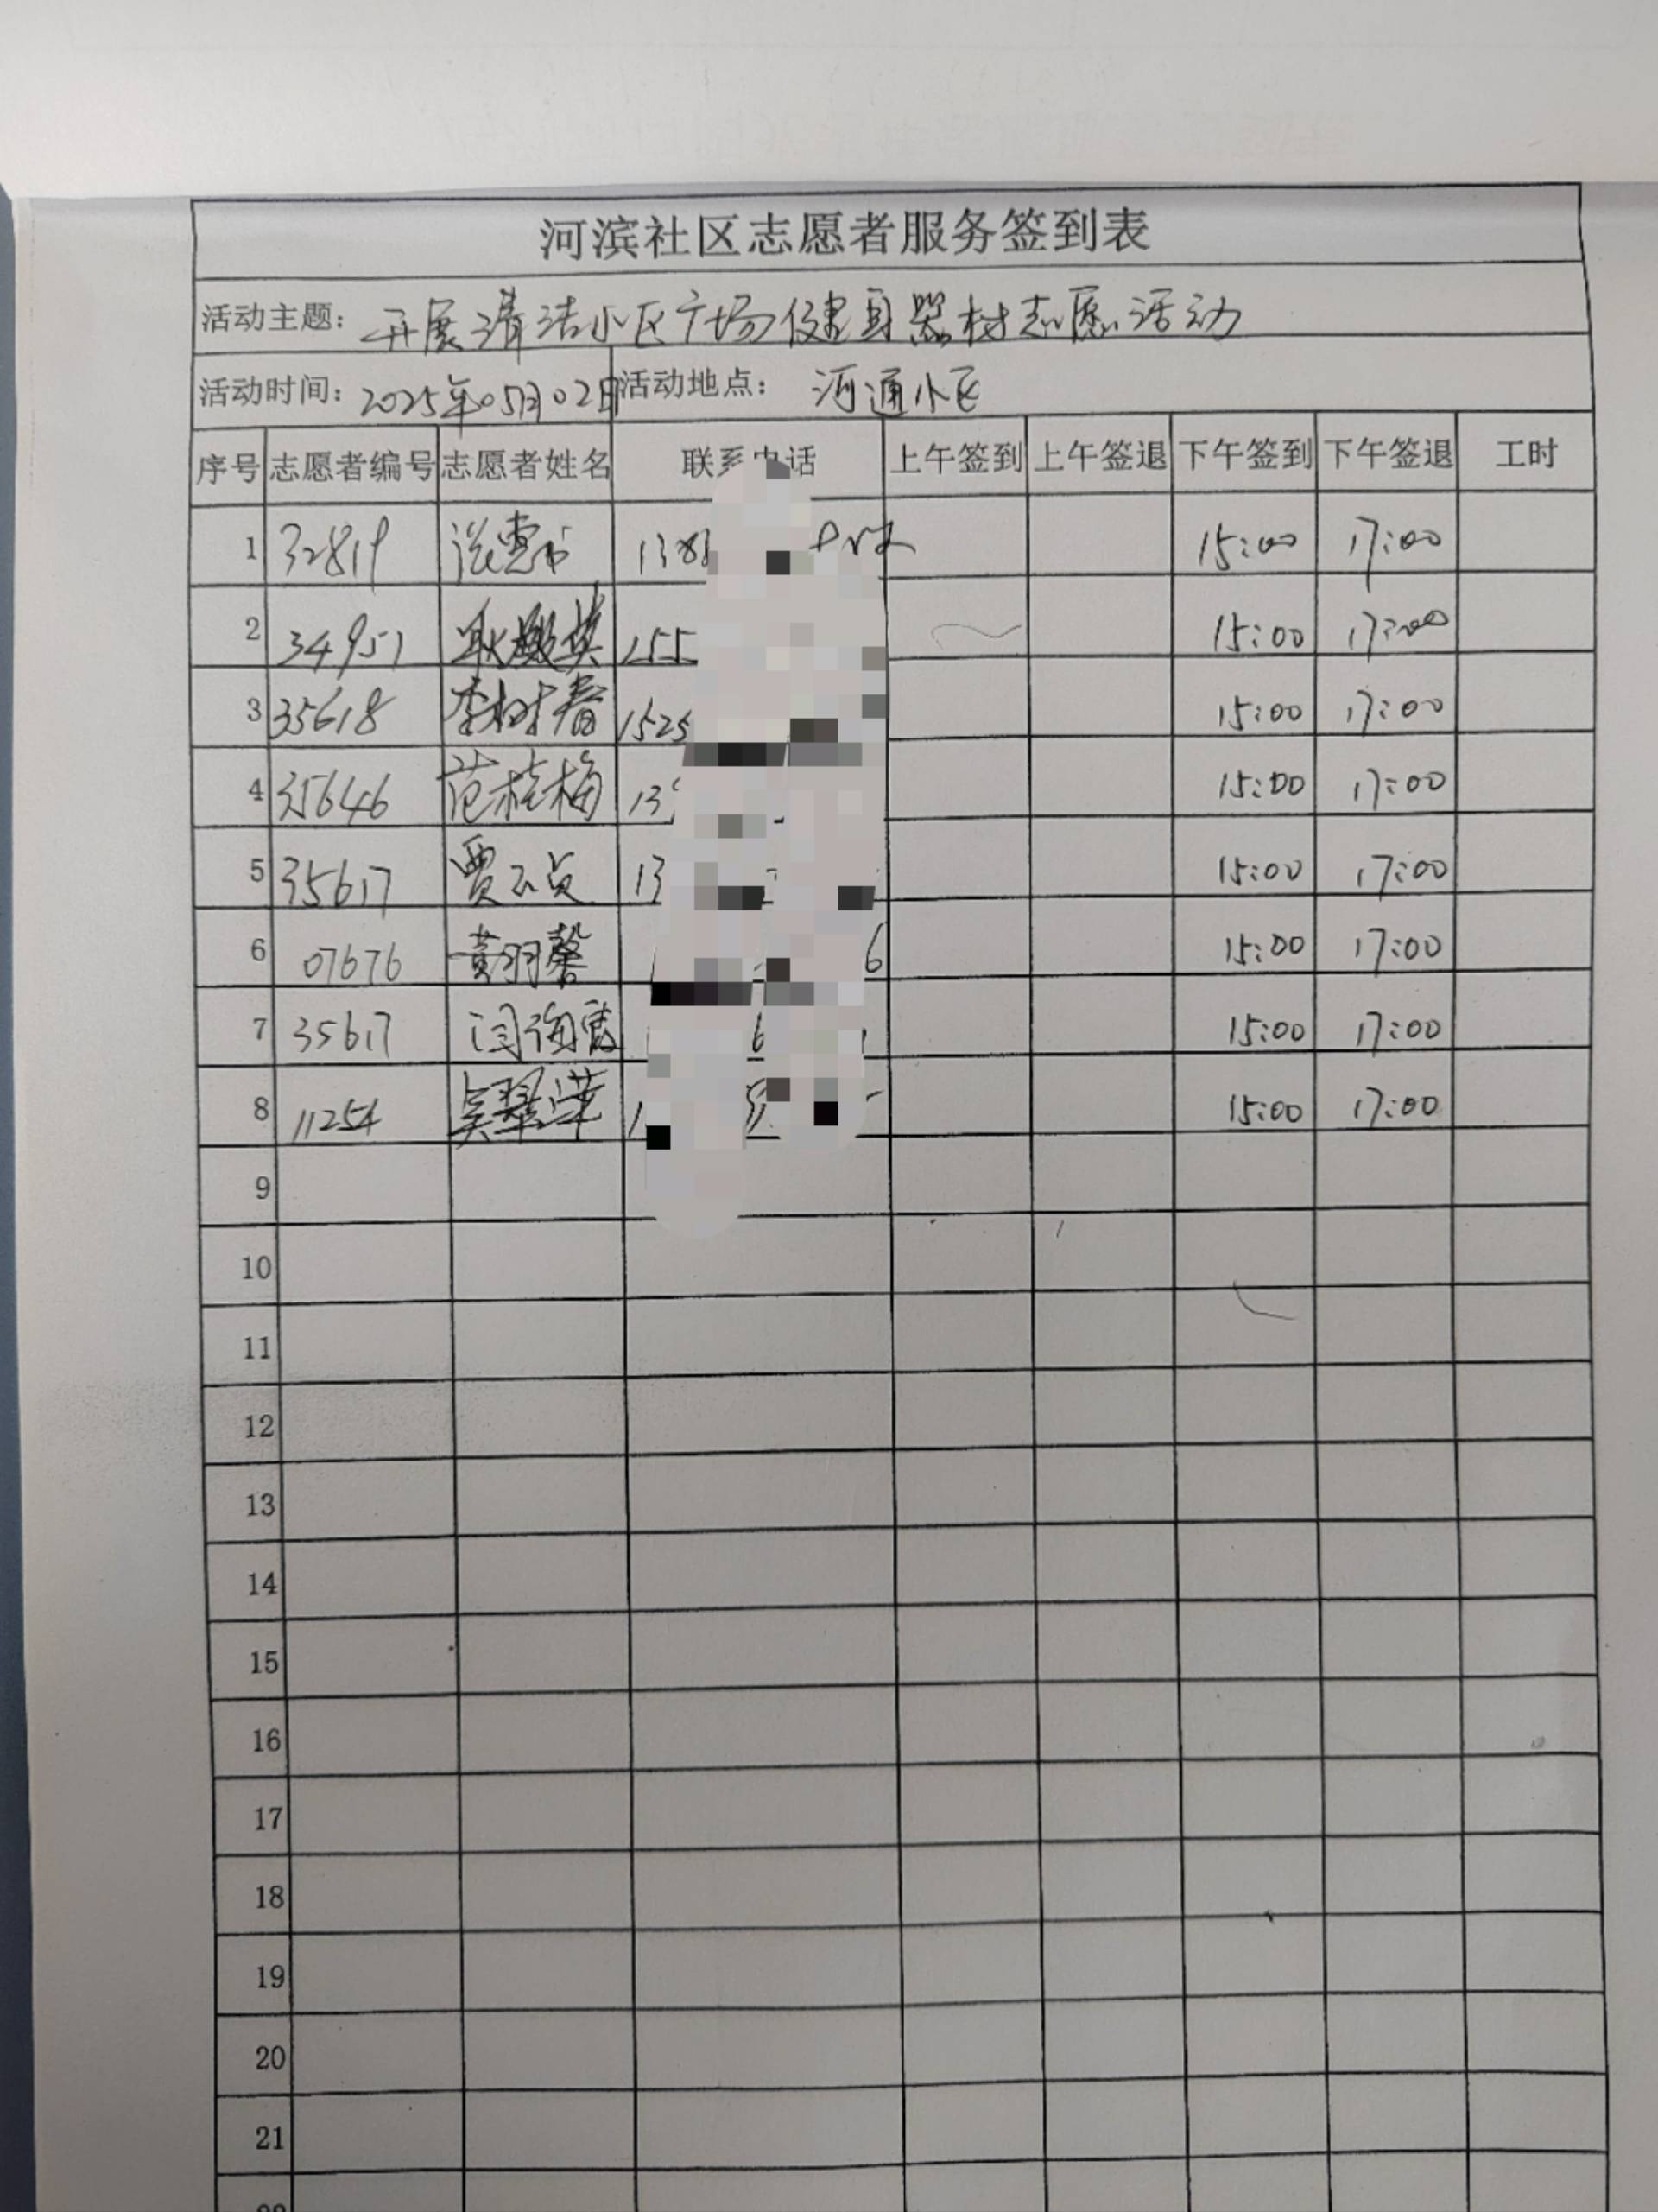 河滨社区志愿者服务签到表
活动主题：开展清洁小区广场健身器材志愿活动
活动时间：2025年05月02日 活动地点：河通小区
序号 志愿者编号 志愿者姓名 联系电话 上午签到 上午签退 下午签到 下午签退 工时
1 32819 138 15:00 17:00
2 34951 155 15:00 17:00
3 35618 李树春 1525 15:00 17:00
4 35646 范桂梅 13 15:00 17:00
5 35617 贾 13 15:00 17:00
6 07676 黄羽馨 6 15:00 17:00
7 35617 闫 6 15:00 17:00
8 11254 吴翠萍 1 15:00 17:00
9
10
11
12
13
14
15
16
17
18
19
20
21